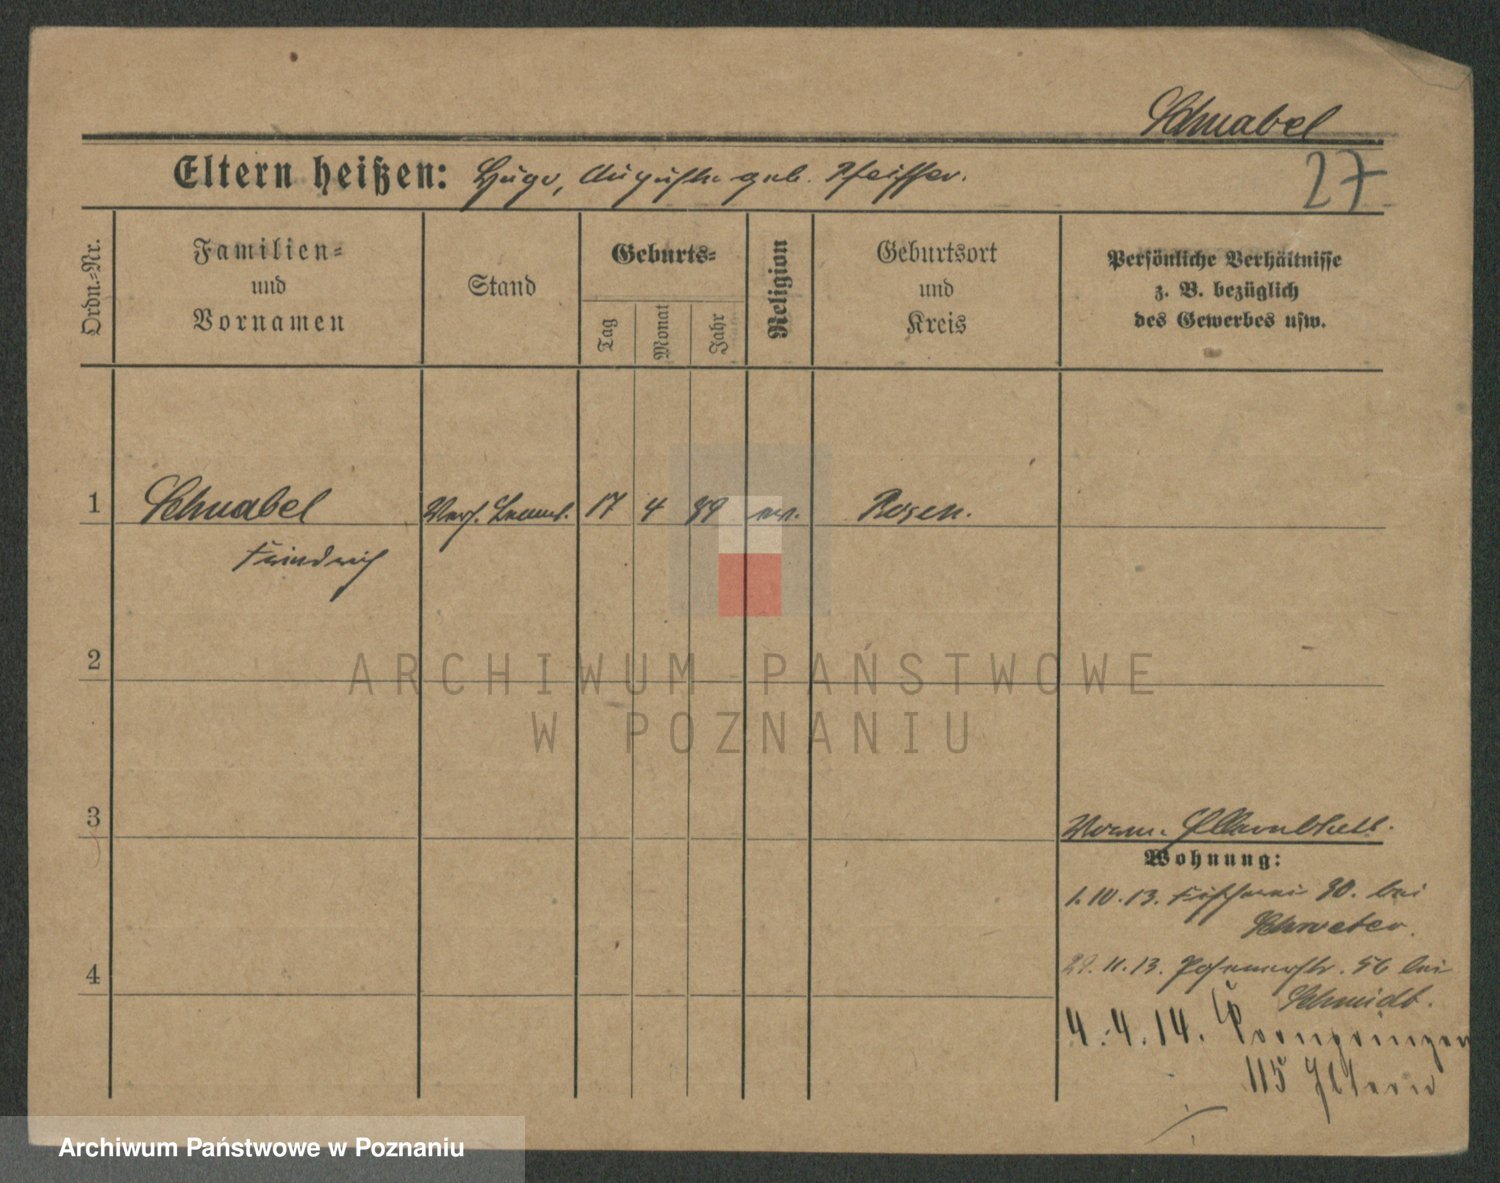 Schnabel
Eltern heißen: Hugo, Auguste geb. Pfeiffer.
27
Ordn.-Nr.
Familien-
und
Vornamen
Stand
Geburts-
Tag
Monat
Jahr
Religion
Geburtsort
und
Kreis
Persönliche Verhältnisse
z. B. bezüglich
des Gewerbes usw.
1 Schnabel 17 4 89 ev. Posen.
Friedrich
2
ARCHIWUM PAŃSTWOWE
W POZNANIU
3
Wohnung:
1.10.13. Fischerei 30. bei
Schroeter.
4
29.11.13. Posenerstr. 56 bei
Schmidt.
4.4.14. Kronprinzen
115 Eltern
Archiwum Państwowe w Poznaniu